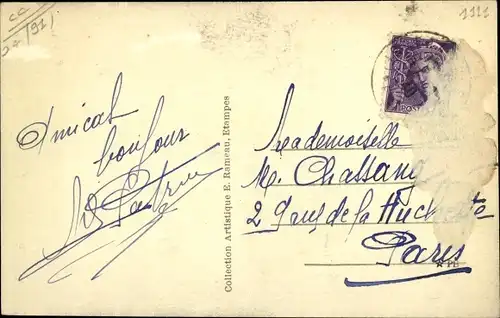 1111
Amical
bonjour
Collection Artistique E. Rameau, Etampes
Mademoiselle
M. Chassang
2 de la Huchette
Paris